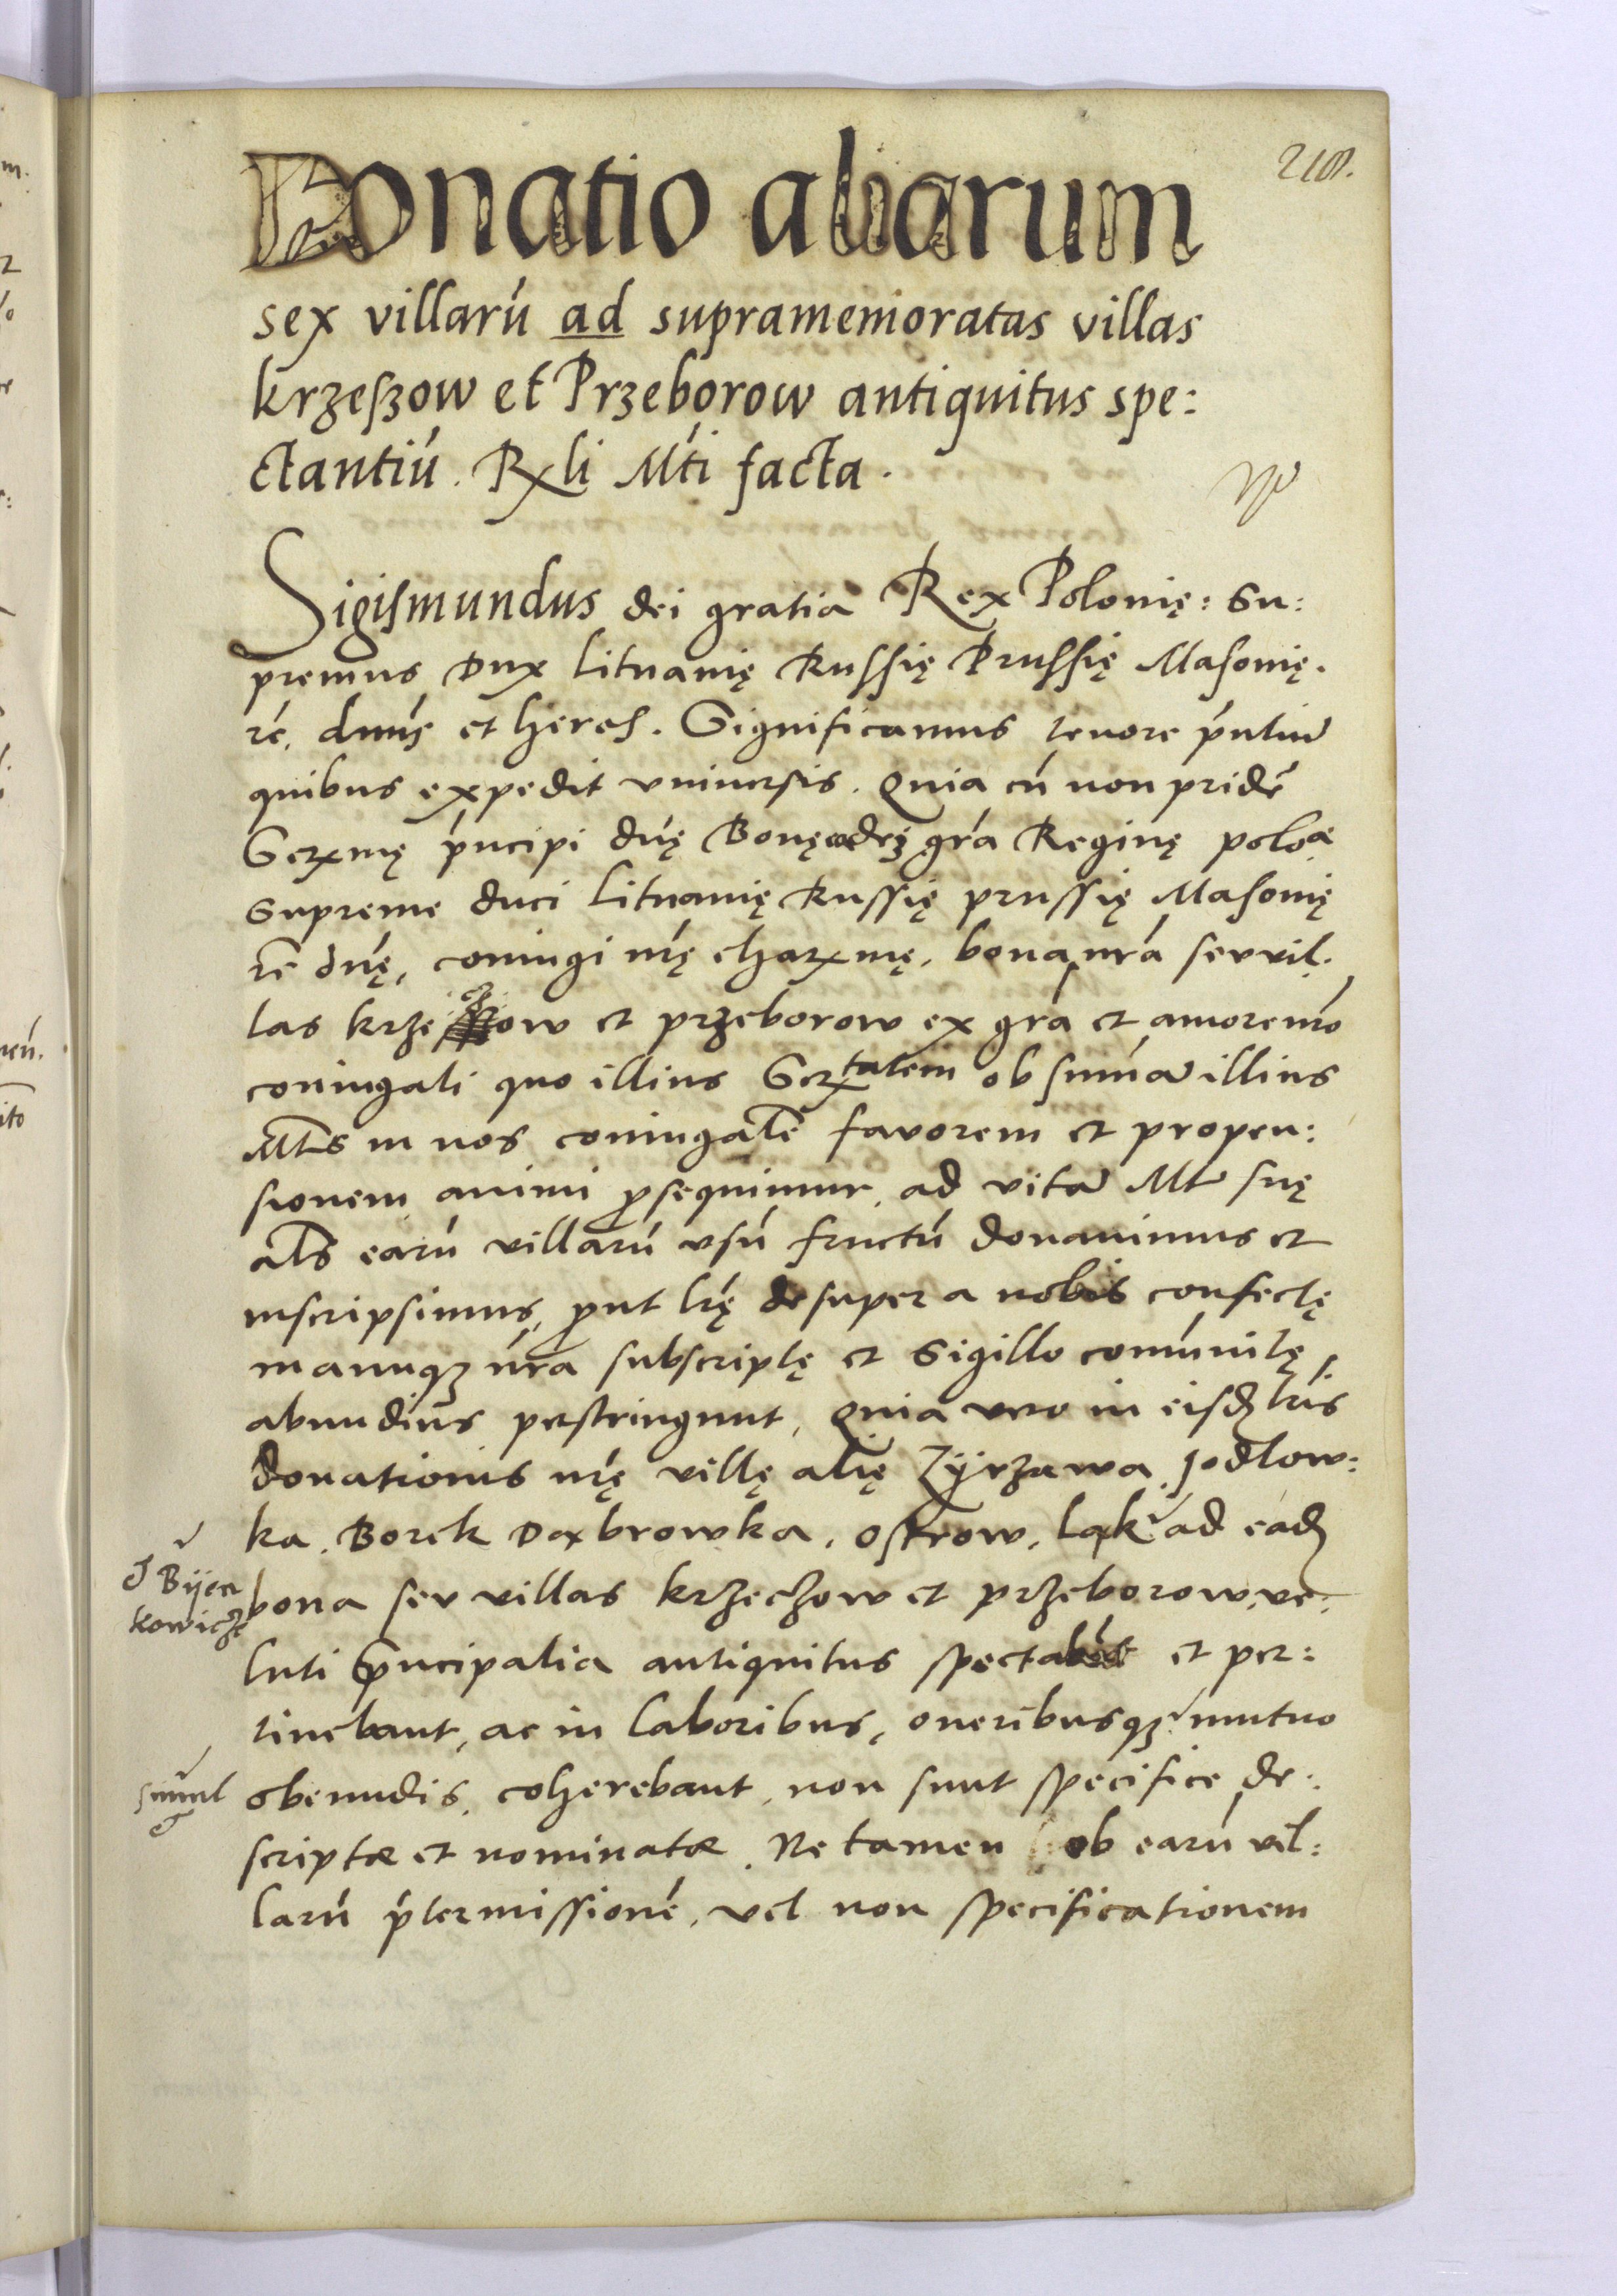 218.
Donatio aliarum
sex villarú ad supramemoratas villas
krzeszow et Przeborow antiquitus spe:
ctantiú. Rxli Mti facta.
Sigismundus dei gratia Rex Polonię: Su:
premus Dux Lituanię Russię Prussię Masonię.
rć. dnús et heres. Significamus tenore pńtiū
quibus expedit vniuersis. Quia cú non pridē
Serxmę pŕncipi dńę Bonę dei grá Reginę poloæ
supreme duci Lituanię Russię prussię Masonię
rć dńę, coniugi nŕę charxmę, bona nŕa seu vil.
las krzechow et przeborow ex grá et amore nŕo
coniugali quo illius Serxtatem ob sumā illius
Mts in nos coniugalē favorem et propen:
sionem animi ꝓsequimur, ad vitā Mt suę
als earú villarú vsú fructú donauimus et
inscripsimus, ꝓut lŕę desuper a nobis confectę
manuqꝫ nŕa subscriptę et sigillo comúnitę,
abundius perstringunt, Quia vero in eisdꝫ lŕis
donationis nŕę villę alię Zÿrzawa, Jodlow:
ka. Borek Daxbrowka, Ostrow, Ląk ad eadꝫ
et Bijen
kowicze
bona seu villas krzechow et przeborow, ve:
luti pŕncipalia antiquitus spectabāt et per:
tinebant, ac in laboribus, oneribusqꝫ mutuo
simul
et
obeundis, coherebant, non sunt specifice de:
scriptæ et nominatæ. Ne tamen ob earú vil:
larú pŕtermissioné, vel non specificationem